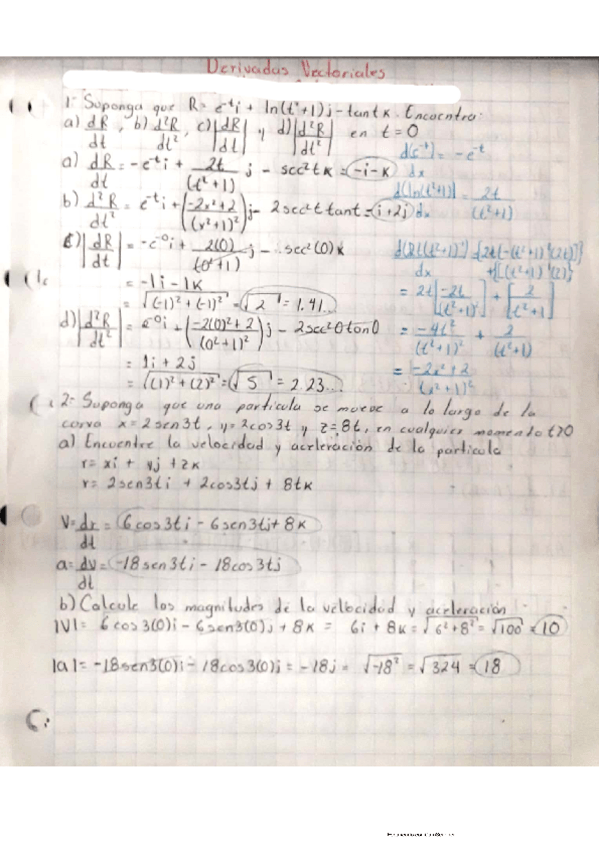 Derivadas Vectoriales
1: Suponga que R= e⁻ᵗi + ln(t²+1)j - tant k. Encuentra:
a) dR/dt, b) d²R/dt², c)|dR/dt| y d)|d²R/dt²| en t=0
a) dR/dt = -e⁻ᵗi + 2t/(t²+1) j - sec²tk = -i-k
b) d²R/dt² = e⁻ᵗi + (-2x²+2/(x²+1)²)j - 2sec²t tant = i+2j
c)|dR/dt| = -e⁻⁰i + 2(0)/(0²+1) j - sec²(0)k
= -1i - 1k
= √(-1)²+(-1)² = √2 = 1.41...
d)|d²R/dt²| = e⁻⁰i + (-2(0)²+2/(0²+1)²)j - 2sec²0tan0
= 1i + 2j
= √(1)²+(2)² = √5 = 2.23...
d(e⁻ᵗ)/dx = -e⁻ᵗ
d(ln(t²+1))/dx = 2t/(t²+1)
= 2t[-2t/(t²+1)²] + [2/(t²+1)]
= -4t²/(t²+1)² + 2/(t²+1)
= -2x²+2/(x²+1)²
2: Suponga que una particula se mueve a lo largo de la
curva x=2sen3t, y=2cos3t y z=8t, en cualquier momento t>0
a) Encuentre la velocidad y aceleración de la particula
r= xi + yj + zk
r= 2sen3ti + 2cos3tj + 8tk
V= dr/dt = 6cos3ti - 6sen3tj + 8k
a= dv/dt = -18sen3ti - 18cos3tj
b) Calcule las magnitudes de la velocidad y aceleración
|V|= 6cos3(0)i - 6sen3(0)j + 8k = 6i + 8k = √6²+8² = √100 = 10
|a|= -18sen3(0)i - 18cos3(0)j = -18j = √-18² = √324 = 18